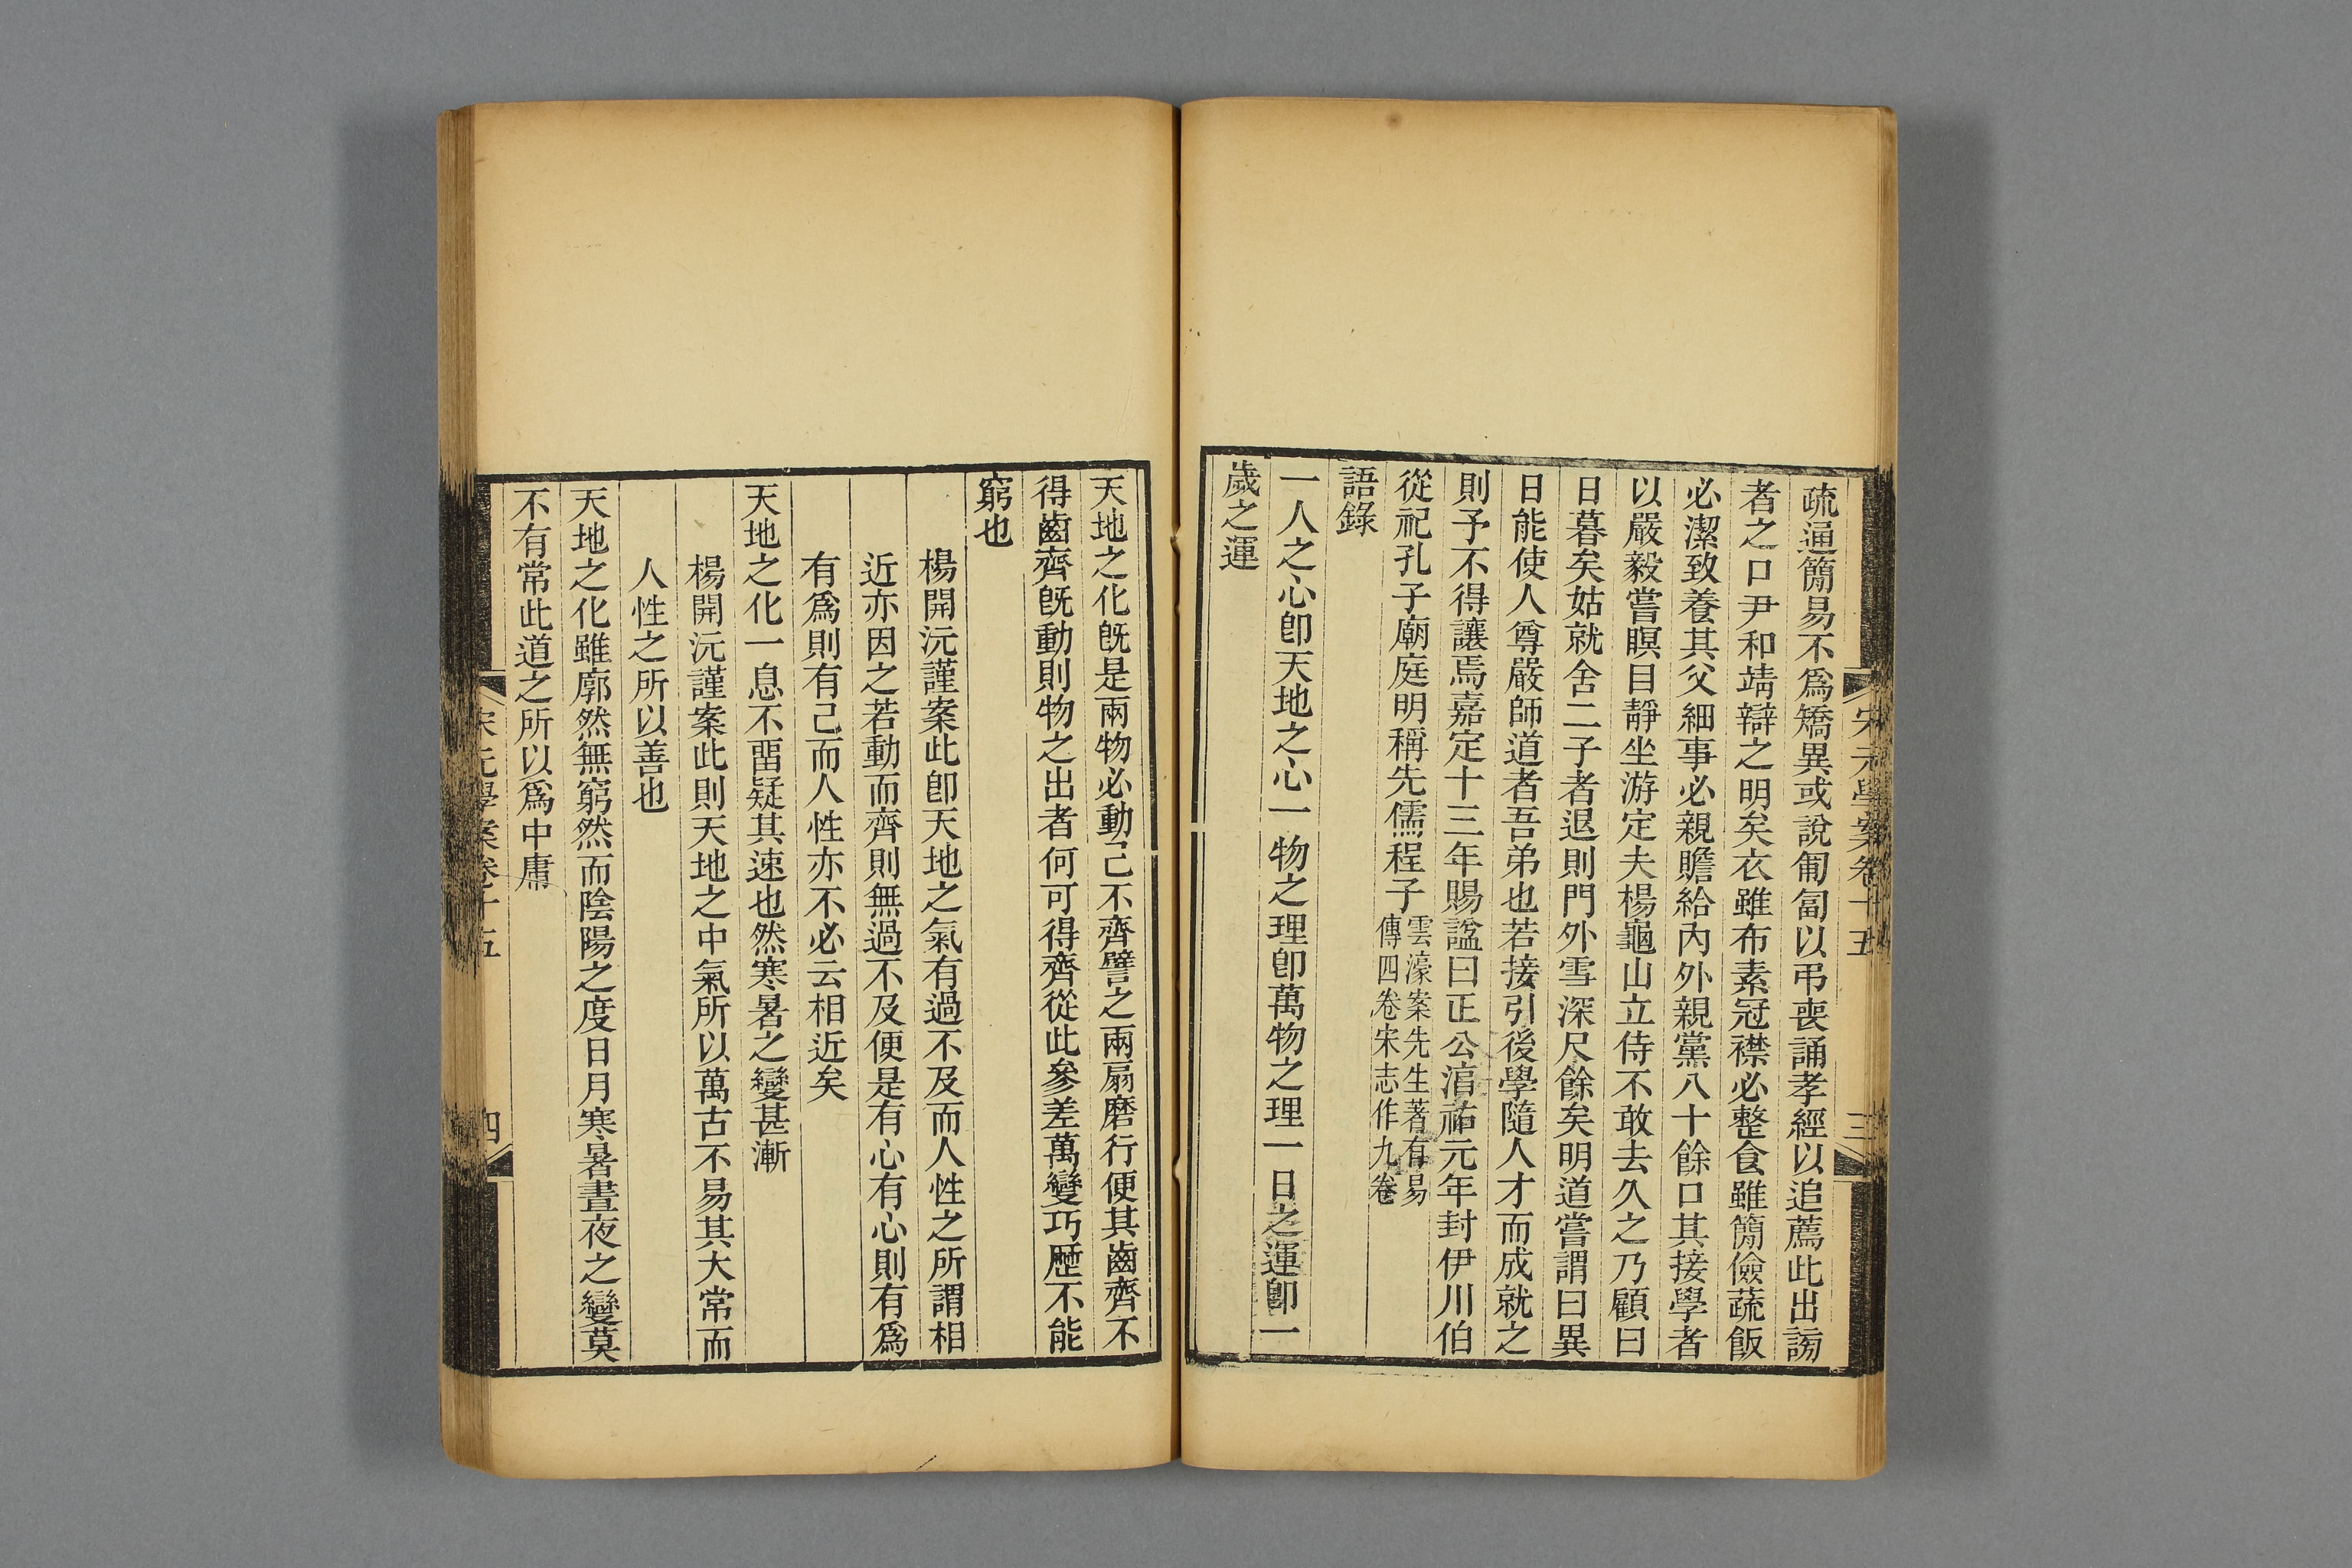 宋元學案卷十五
三
疏通簡易不爲矯異或說匍匐以弔喪誦孝經以追薦此出謗
者之口尹和靖辯之明矣衣雖布素冠襟必整食雖簡儉蔬飯
必潔致養其父細事必親贍給內外親黨八十餘口其接學者
以嚴毅嘗瞑目靜坐游定夫楊龜山立侍不敢去久之乃顧曰
日暮矣姑就舍二子者退則門外雪深尺餘矣明道嘗謂曰異
日能使人尊嚴師道者吾弟也若接引後學隨人才而成就之
則予不得讓焉嘉定十三年賜諡曰正公淯祐元年封伊川伯
從祀孔子廟庭明稱先儒程子
雲濠案先生著有易
傳四卷宋志作九卷
語錄
一人之心卽天地之心一物之理卽萬物之理一日之運卽一
歲之運
天地之化旣是兩物必動己不齊譬之兩扇磨行便其齒齊不
得齒齊旣動則物之出者何可得齊從此參差萬變巧歷不能
窮也
楊開沅謹案此卽天地之氣有過不及而人性之所謂相
近亦因之若動而齊則無過不及便是有心有心則有爲
有爲則有己而人性亦不必云相近矣
天地之化一息不畱疑其速也然寒暑之變甚漸
楊開沅謹案此則天地之中氣所以萬古不易其大常而
人性之所以善也
天地之化雖廓然無窮然而陰陽之度日月寒暑晝夜之變莫
不有常此道之所以爲中庸
宋元學案卷十五
四